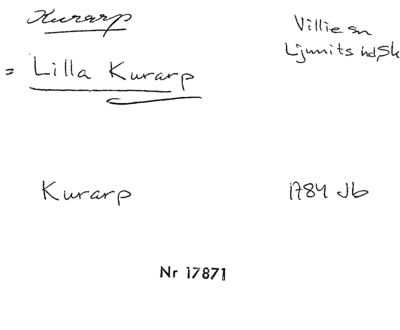 Kurarp
Villie sn
Ljunits hd, Sk
= Lilla Kurarp
Kurarp
1784 Jb
Nr 17871